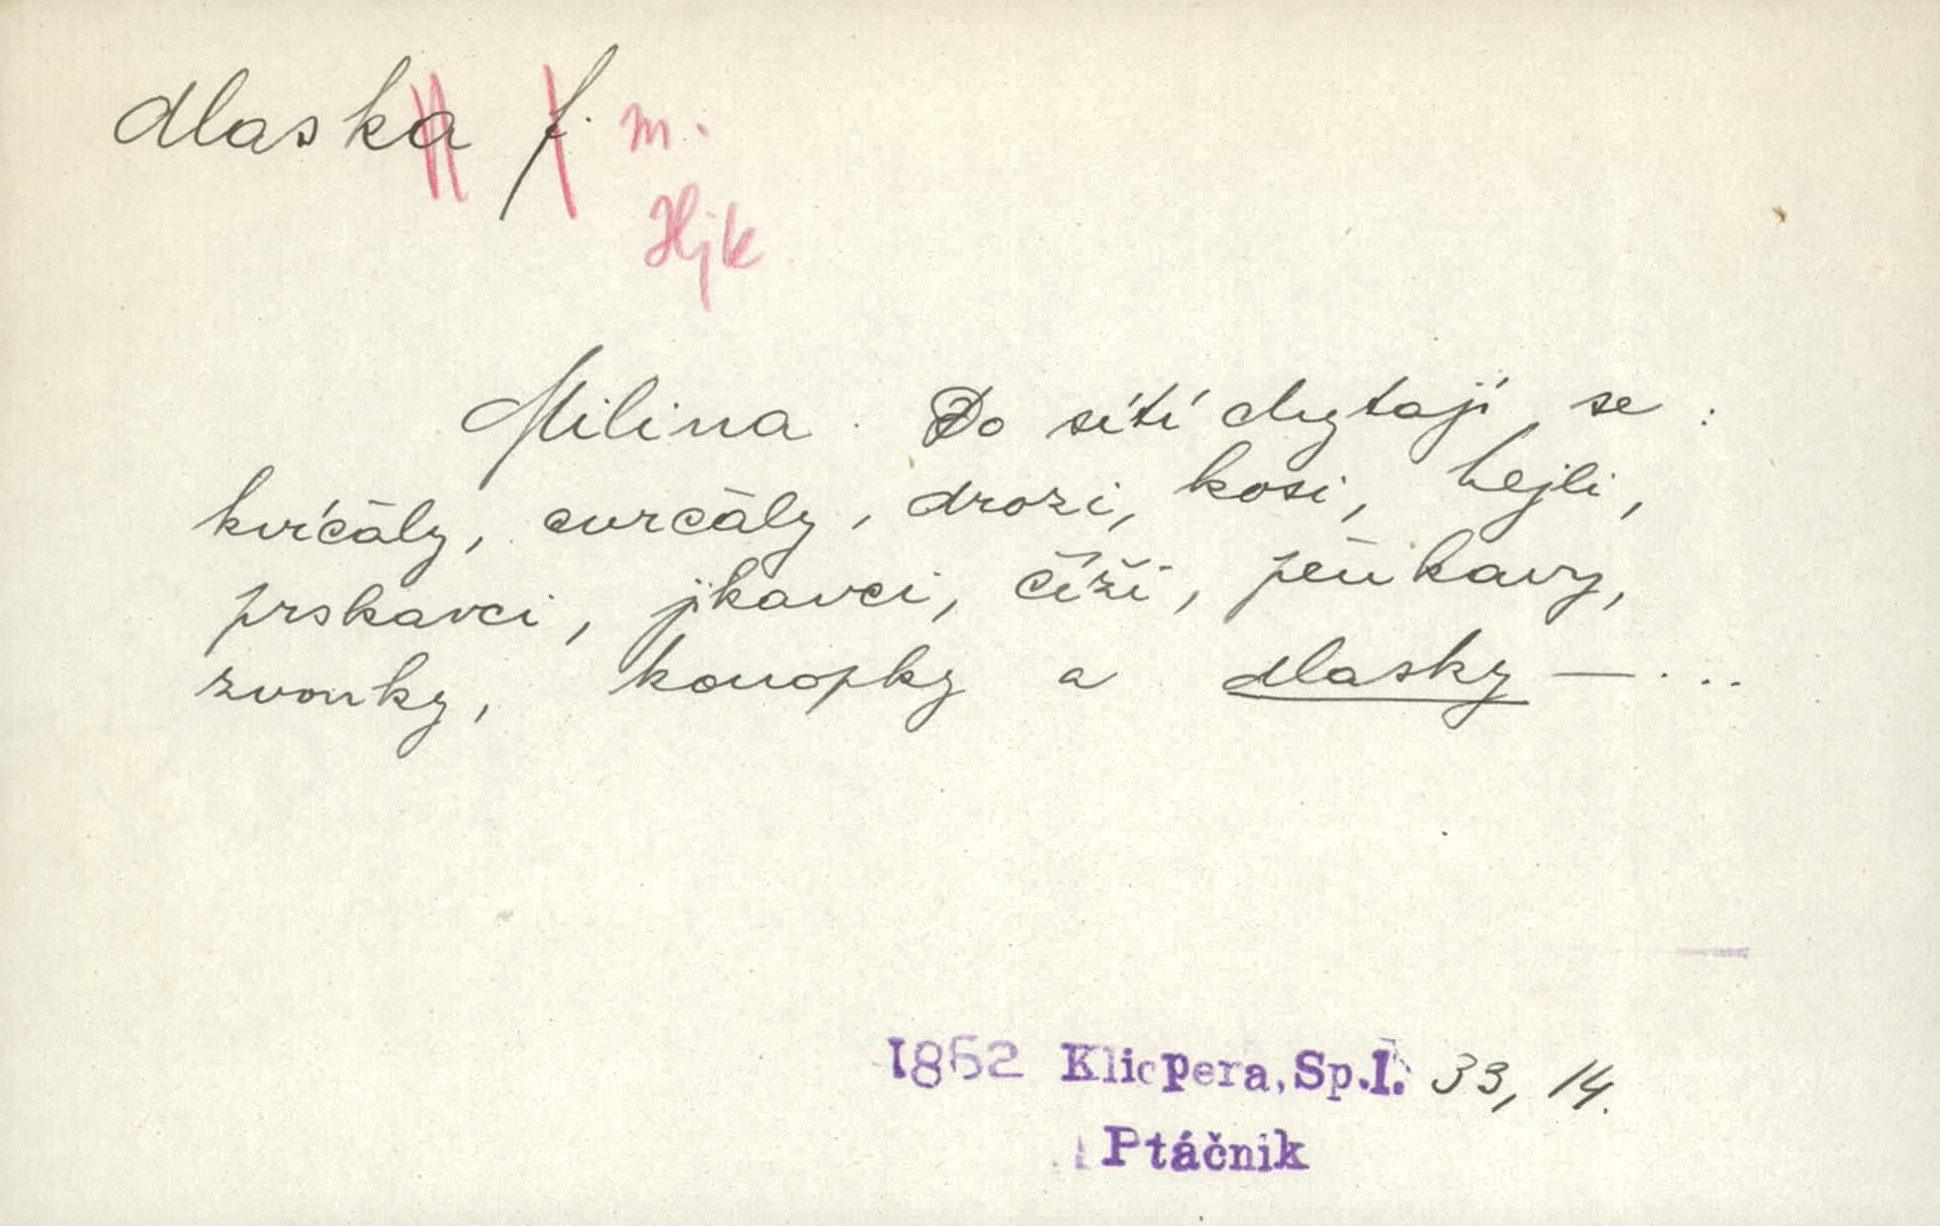 dlaska f. m.
Hjk
Milina. Do sítí chytají se:
kvíčaly, cvrčaly, drozi, kosi, hejli,
prskavci, jikavci, číži, pěnkavy,
zvonky, konopky a dlasky — ...
1862 Klicpera, Sp. I. 33, 14.
Ptáčnik